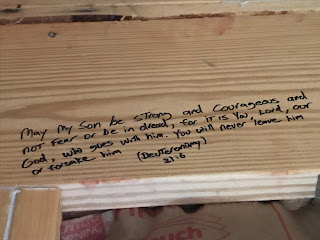 May My Son be strong and Courageous and
not fear or be in dread, for IT IS You, Lord, our
God, who goes with him. You will never leave him
or forsake him (Deuteronomy)
31:6